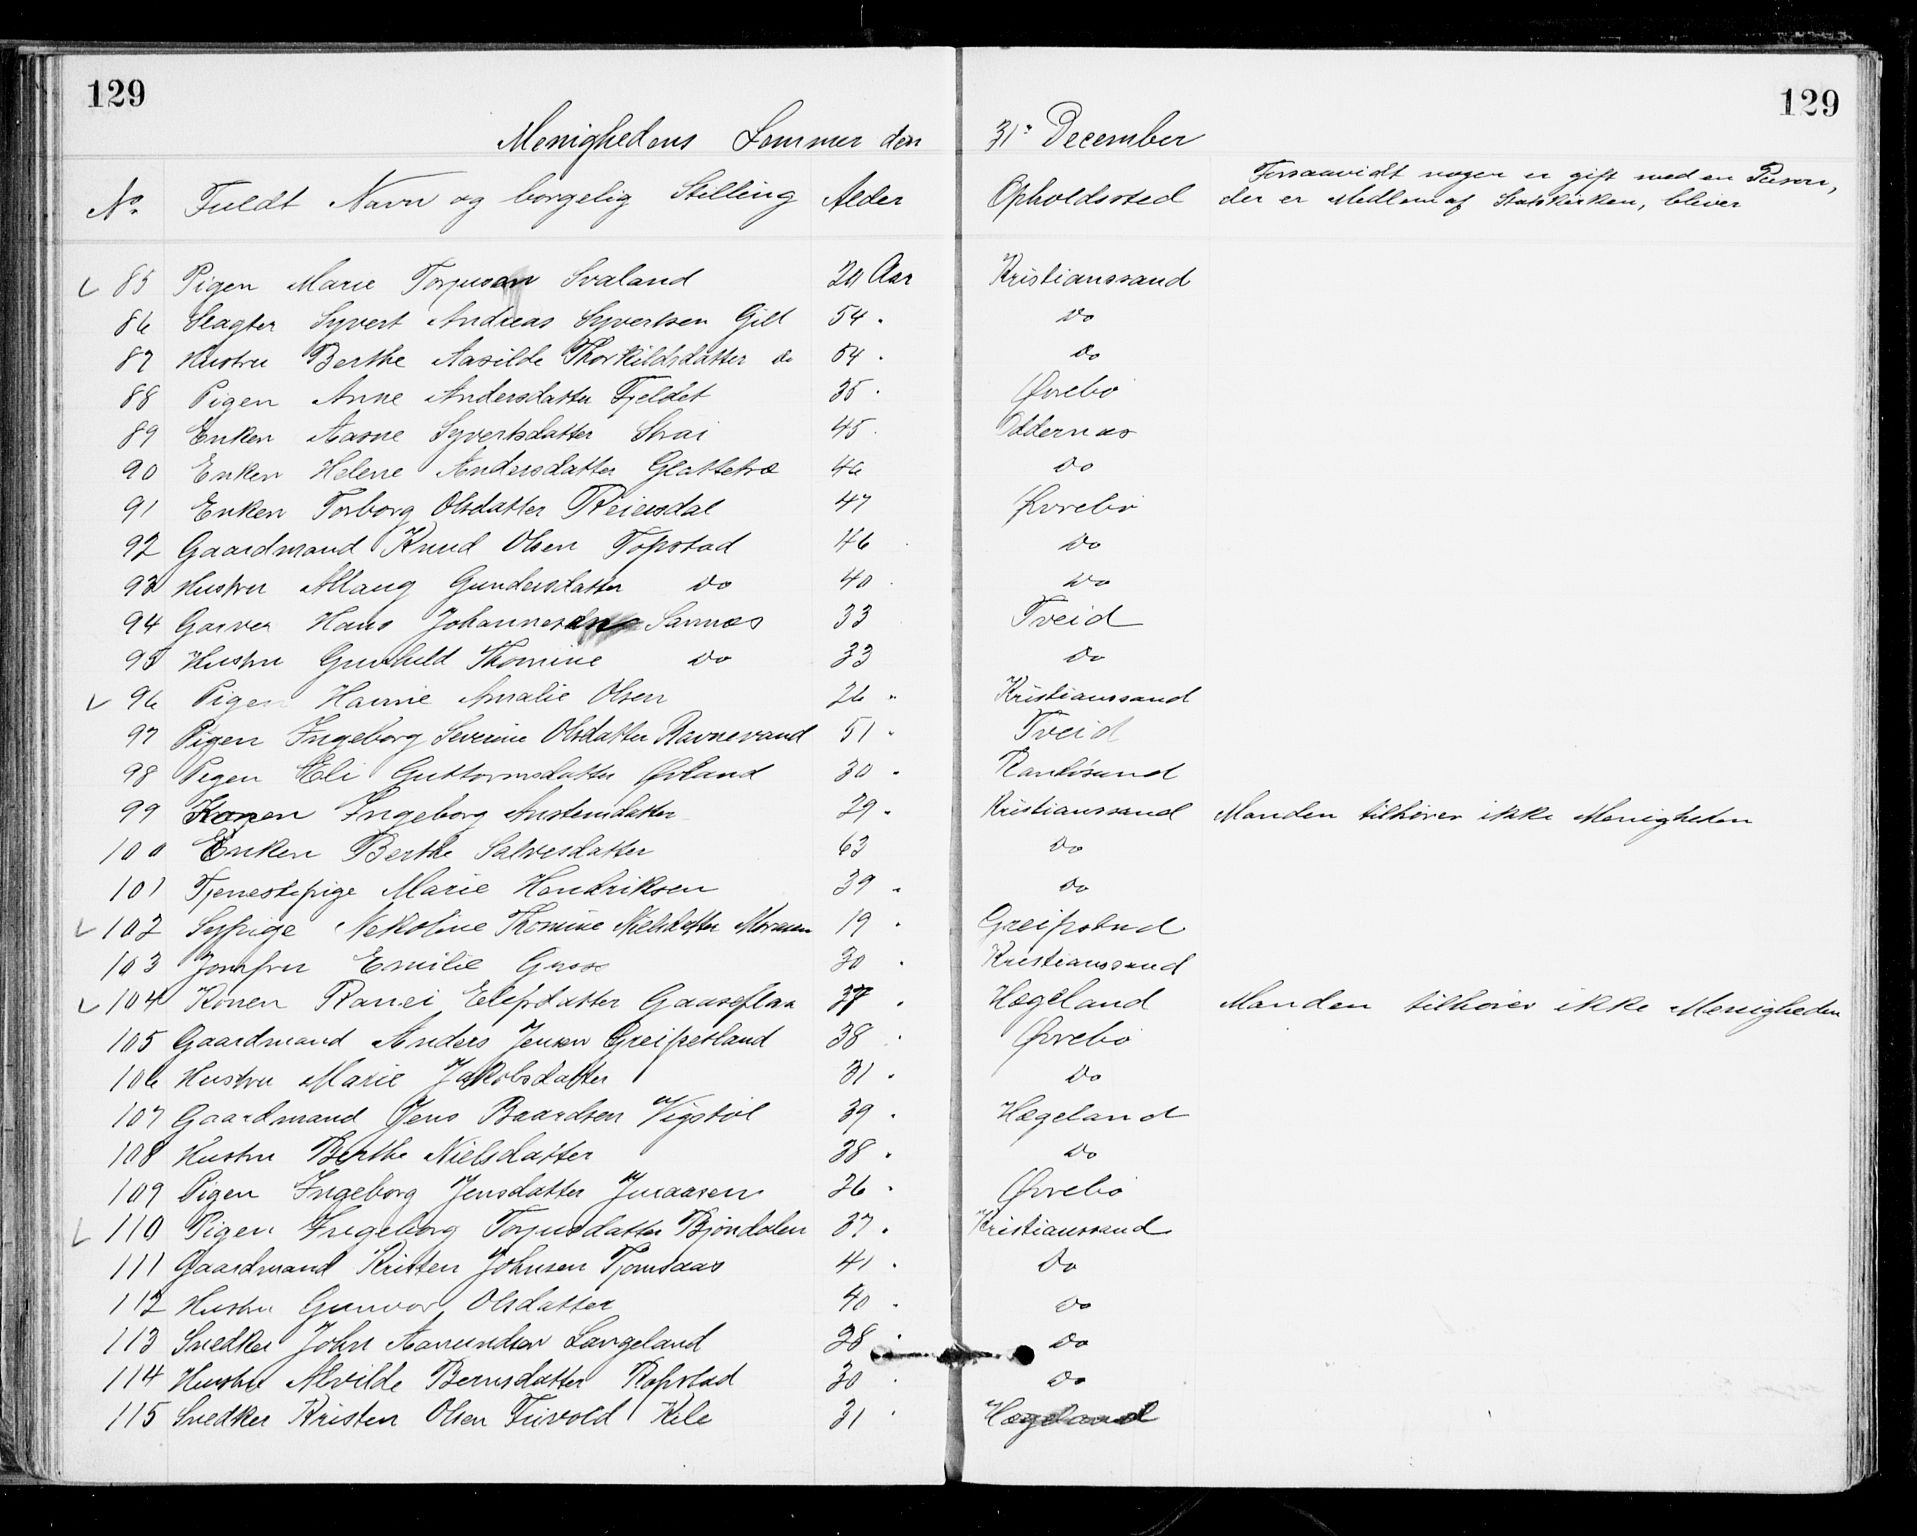 129 129
Menighedens Lemmer den 31. December
No. Fuldt Navn og borgelig Stilling Alder Opholdssted Forsaavidt nogen er gift med en Person,
der er Medlem af Statskirken, bliver
85 Pigen Marie Svaland 20 Aar Kristianssand
86 Slagter Syvert Andreas Syvertsen Gill 54 Do
87 Hustru Berthe Aasilde Thorkildsdatter do 54 Do
88 Pigen Anne Andersdatter Fjeldet 35 Øvrebö
89 Enken Aasne Syvertsdatter Strai 45 Oddernæs
90 Enken Helene Andersdatter Glattetræ 46 Do
91 Enken Torborg Olsdatter Reiersdal 47 Øvrebö
92 Gaardmand Knud Olsen Topstad 46 Do
93 Hustru Allaug Gundersdatter Do 40 Do
94 Garver Hans Johannesen Sannæs 33 Tveid
95 Hustru Gunhild Thomine Do 33 Do
96 Pigen Hanne Amalie Olsen 26 Kristianssand
97 Pigen Ingeborg Severine Olsdatter Ravnevand 51 Tveid
98 Pigen Eli Guttormsdatter Øvland 30 Randösund
99 Konen Ingeborg Austensdatter 29 Kristianssand Manden tilhører ikke Menigheden
100 Enken Berthe Salvesdatter 63 Do
101 Tjenestepige Marie Hendriksen 39 Do
102 Sypige Nekoline Thomine Nielsdatter 19 Greipstad
103 Jomfru Emilie 30 Kristianssand
104 Konen Ranei Elefsdatter Gaaseflaa 37 Hægeland Manden tilhører ikke Menigheden
105 Gaardmand Anders Jensen Greipesland 38 Øvrebö
106 Hustru Marie Jakobsdatter 31 Do
107 Gaardmand Jens Baardsen Vigstöl 39 Hægeland
108 Hustru Berthe Nielsdatter 38 Do
109 Pigen Ingeborg Jensdatter 26 Øvrebö
110 Pigen Ingeborg Torjusdatter Bjöndalen 37 Kristianssand
111 Gaardmand Kristen Johnsen Tjomsaas 41 Do
112 Hustru Gunvor Olsdatter 40 Do
113 Snedker John Aanundsen Langeland 28 Do
114 Hustru Alvilde Berntsdatter Ropstad 30 Do
115 Snedker Kristen Olsen Tuvold Kile 31 Hægeland